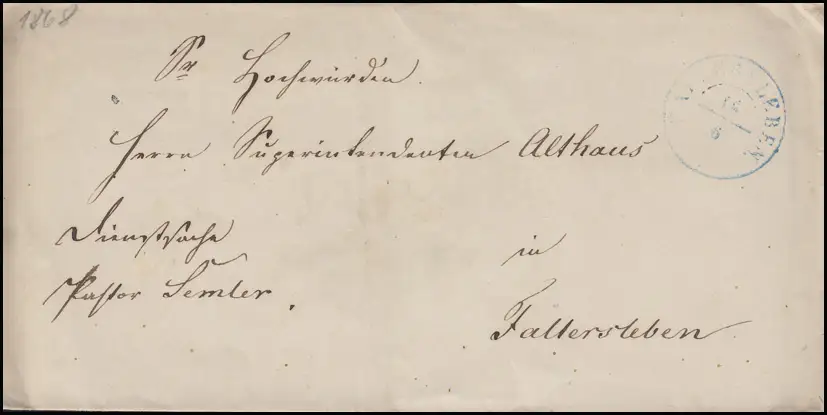 1868
Sr Hochwürden.
FALLERSLEBEN
16
6
Herrn Superintendenten Althaus
Dienstsache
in
Pastor Semler.
Fallersleben